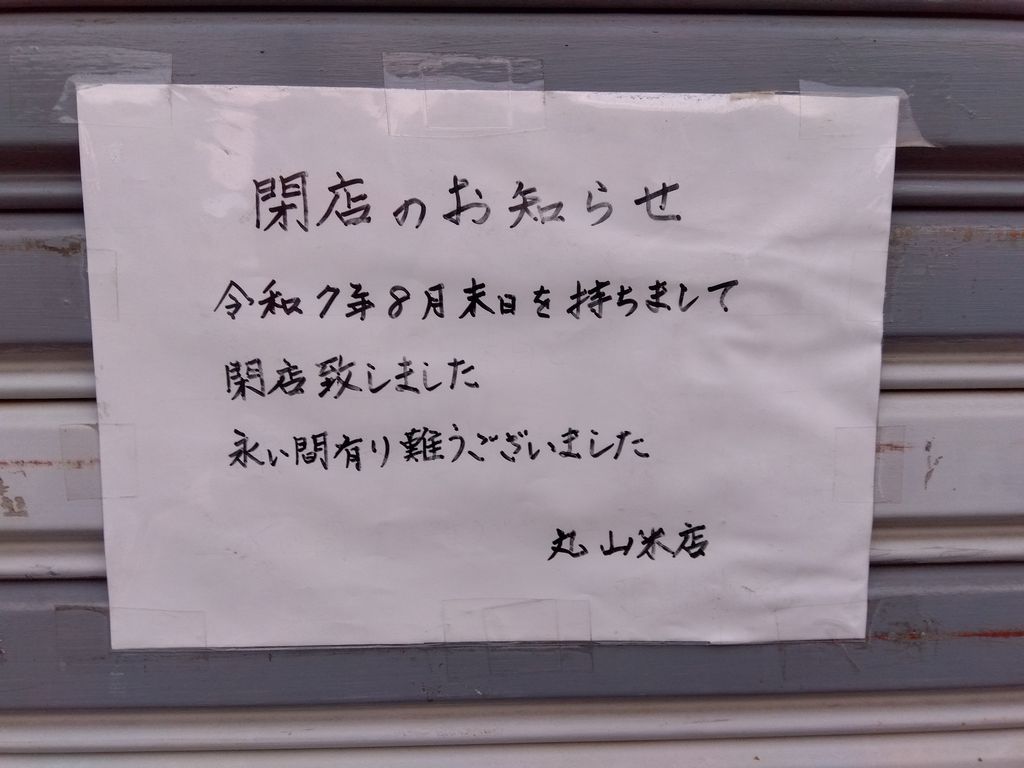 閉店のお知らせ
令和7年8月末日を持ちまして
閉店致しました
永い間有り難うございました
丸山米店